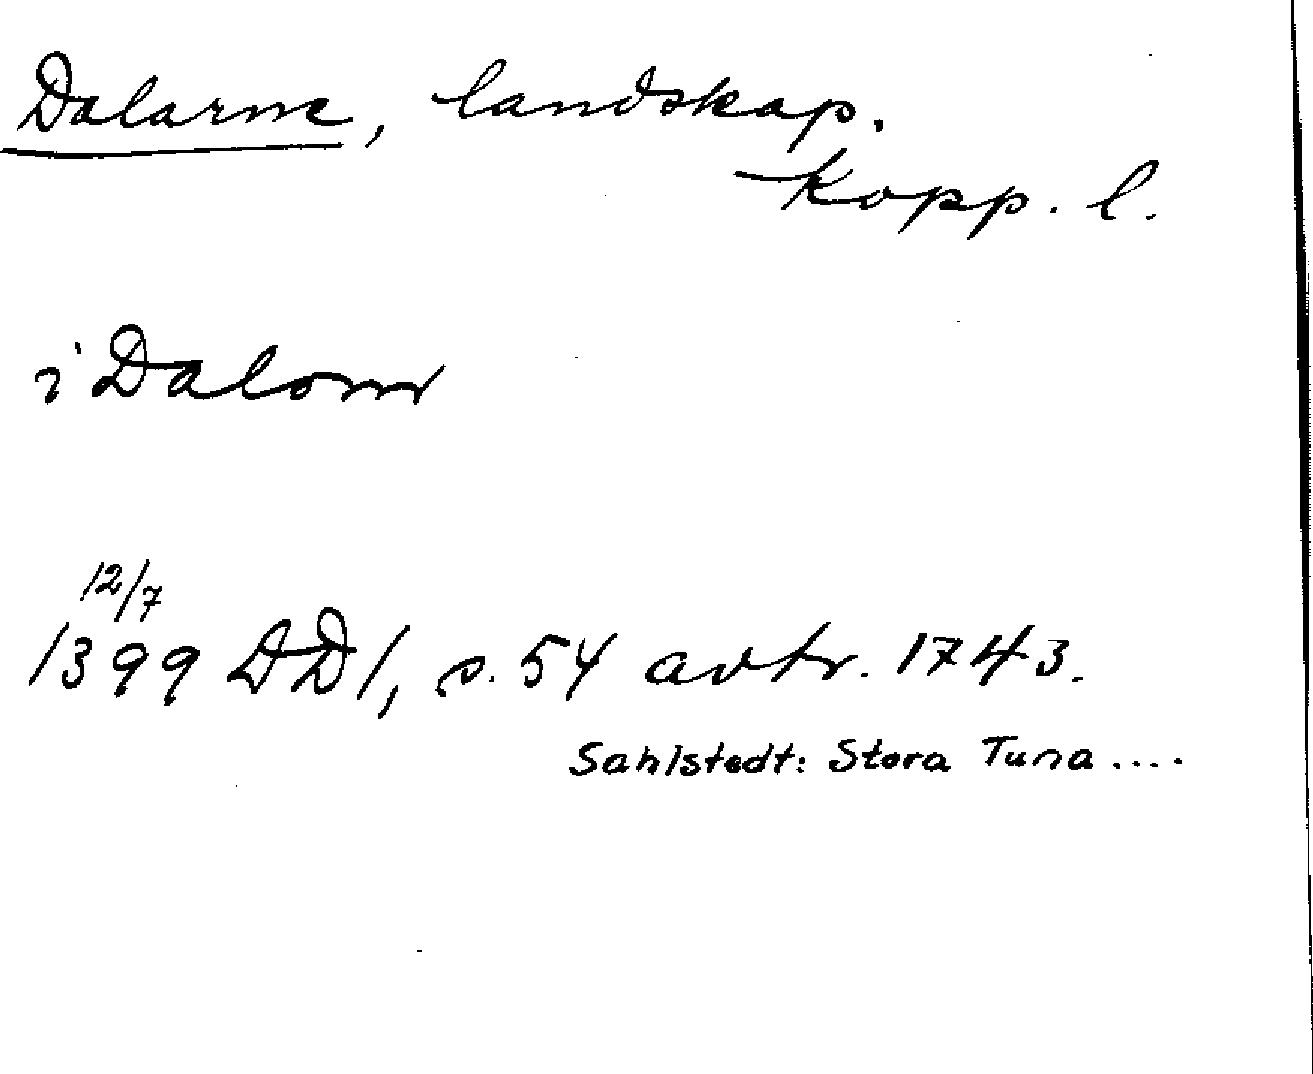 Dalarne, landskap.
Kopp. l.
i Dalom
12/7
1399 DD 1, s. 54 avtr. 1743.
Sahlstedt: Stora Tuna ....